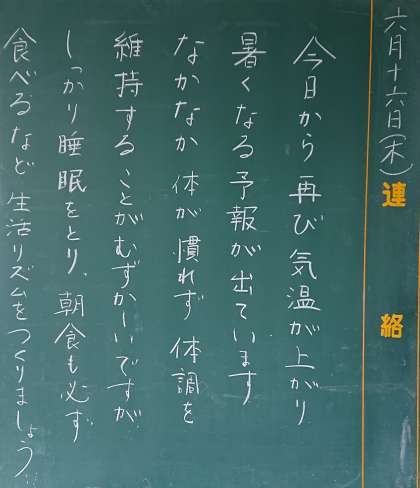 六月十六日(木)
連絡
今日から再び気温が上がり
暑くなる予報が出ています
なかなか体が慣れず体調を
維持することがむずかしいですが
しっかり睡眠をとり、朝食も必ず
食べるなど生活リズムをつくりましょう